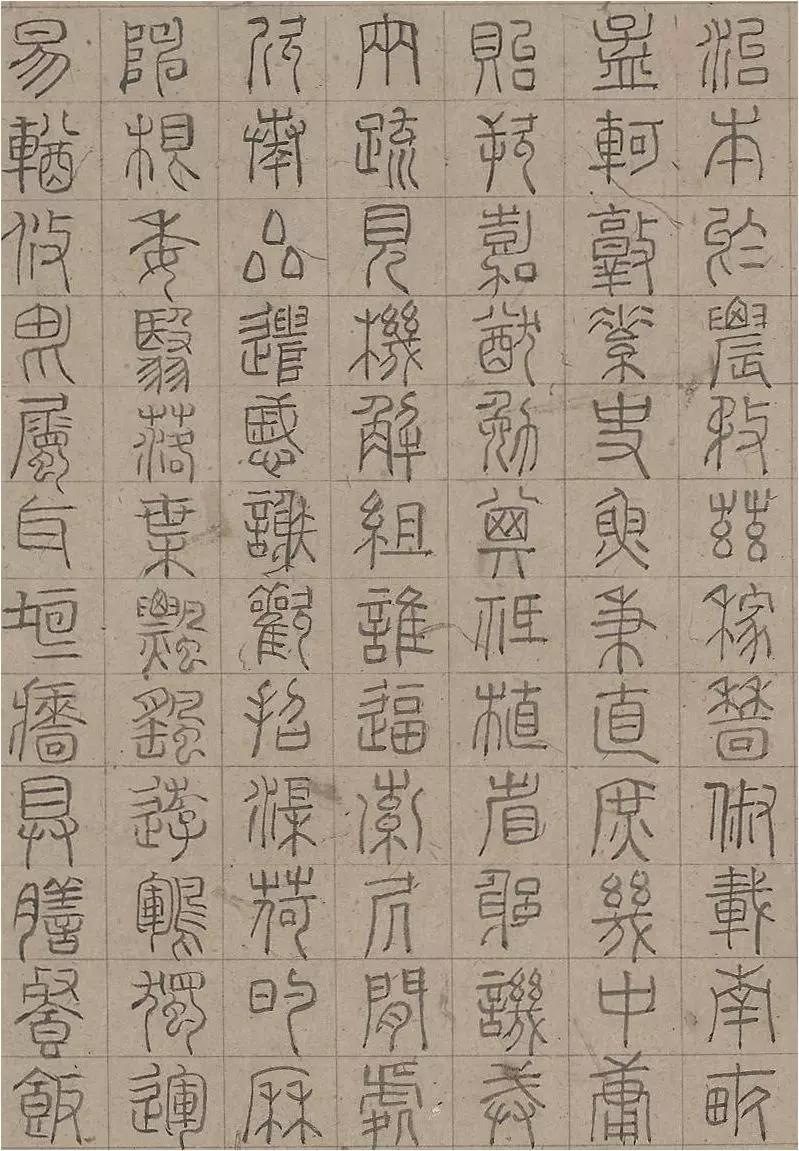 治本於農務茲稼穡俶載南畝
孟軻敦素史魚秉直庶幾中庸
貽厥嘉猷勉其祗植省躬譏誡
兩疏見機解組誰逼索居閒處
欣奏累遣慼謝歡招渠荷的歷
陳根委翳落葉飄颻遊鵾獨運
易輶攸畏屬耳垣牆具膳餐飯